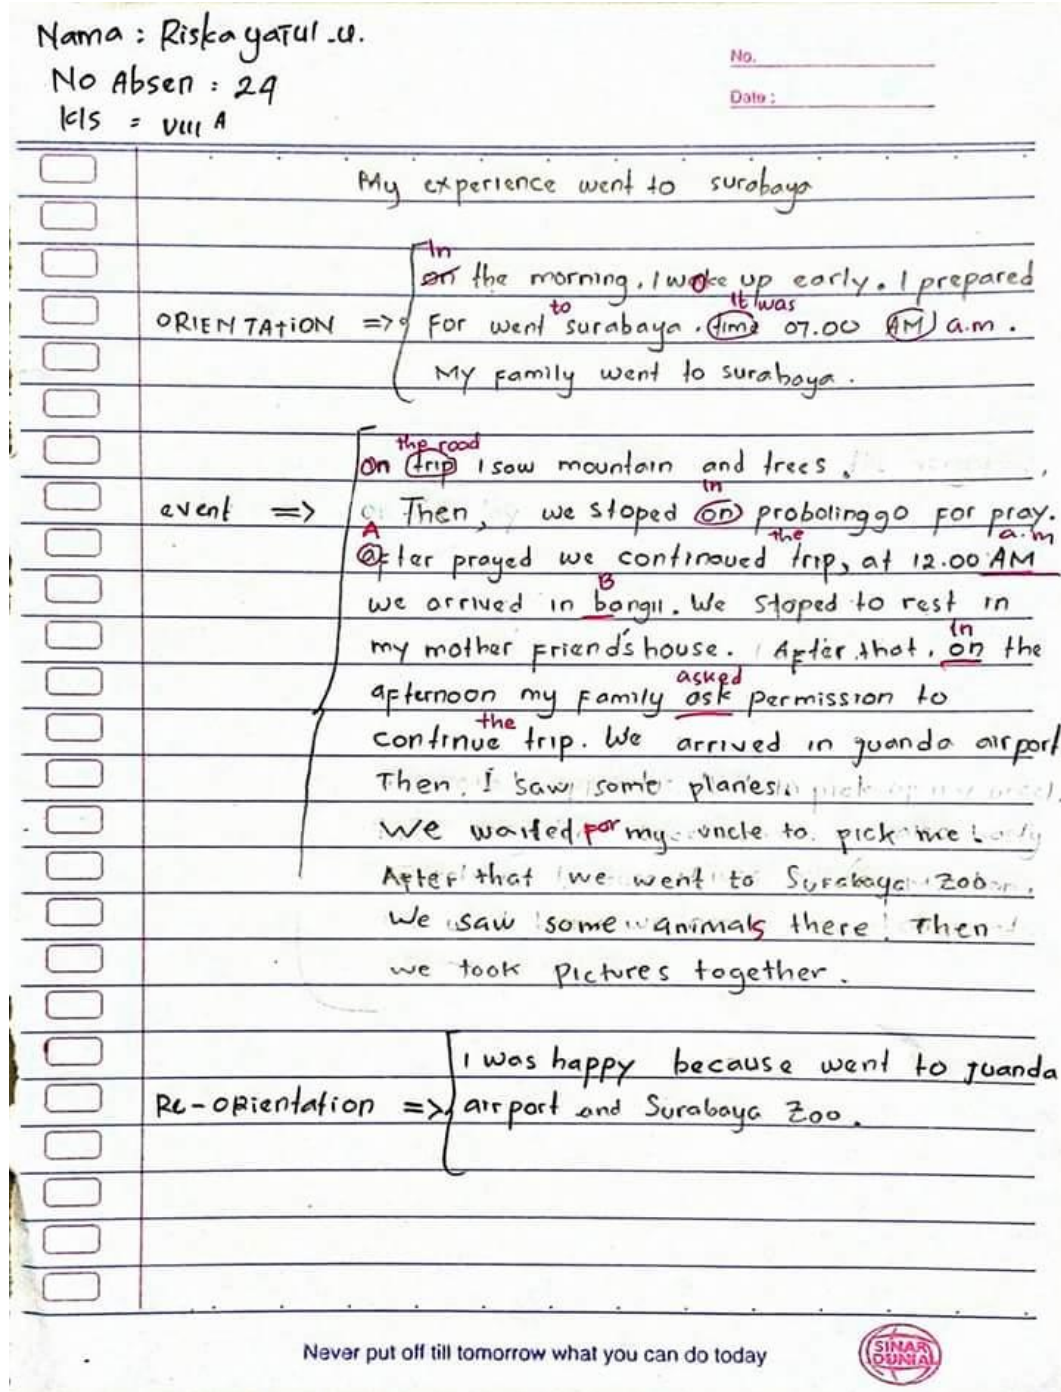 Nama : Riska yatul .u.
No Absen : 24
kls = VIII A
No.
Date :
My experience went to surabaya
In
on the morning, I woke up early. I prepared
to It was
ORIENTATION => For went surabaya. time 07.00 AM a.m.
My Family went to surabaya.
the road
On trip I saw mountain and trees.
in
event => Then, we stoped on probolinggo for pray.
A the a.m
after prayed we continoued trip, at 12.00 AM
B
we arrived in bangil. We stoped to rest in
in
my mother Friend's house. After that, on the
asked
afternoon my Family ask permission to
the
continue trip. We arrived in juanda airport
Then, I saw some planes.
We waited for my uncle to pick me
After that we went to Surabaya Zoo
We saw some animals there. Then
we took Pictures together.
I was happy because went to juanda
Re-ORientation => airport and Surabaya Zoo.
Never put off till tomorrow what you can do today
SINAR
DUNIA